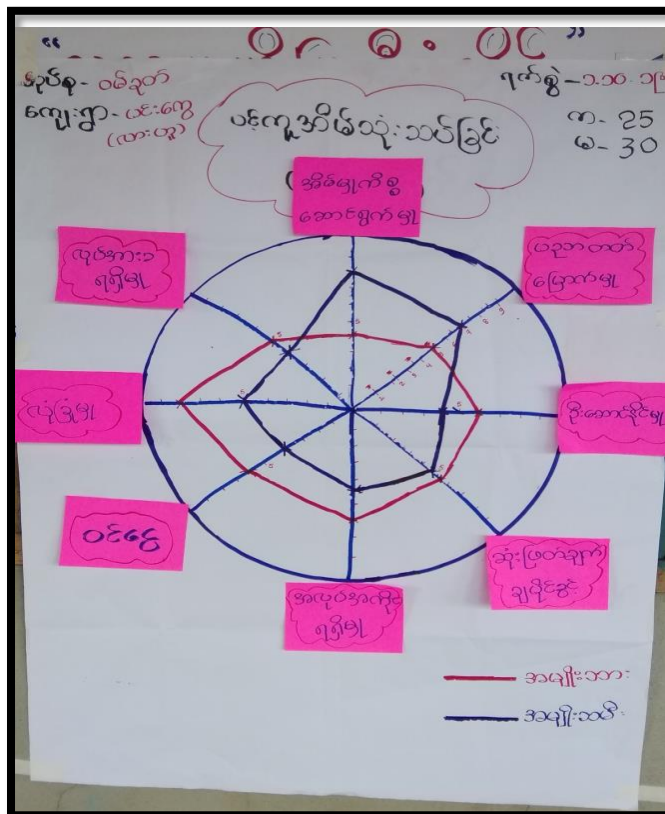 ဝမ်ခုတ်
ကျေးရွာ- ပင်းကွေ
(လားဟူ)
ရက်စွဲ -
က- 25
မ- 30
ပင့်ကူအိမ်သုံးသပ်ခြင်း
အိမ်မှုကိစ္စ
ဆောင်ရွက်မှု
ပညာတတ်
မြောက်မှု
ဦးဆောင်နိုင်မှု
ဆုံးဖြတ်ချက်
ချပိုင်ခွင့်
အလုပ်အကိုင်
ရရှိမှု
ဝင်ငွေ
လုံခြုံမှု
လုပ်အားခ
ရရှိမှု
အမျိုးသား
အမျိုးသမီး